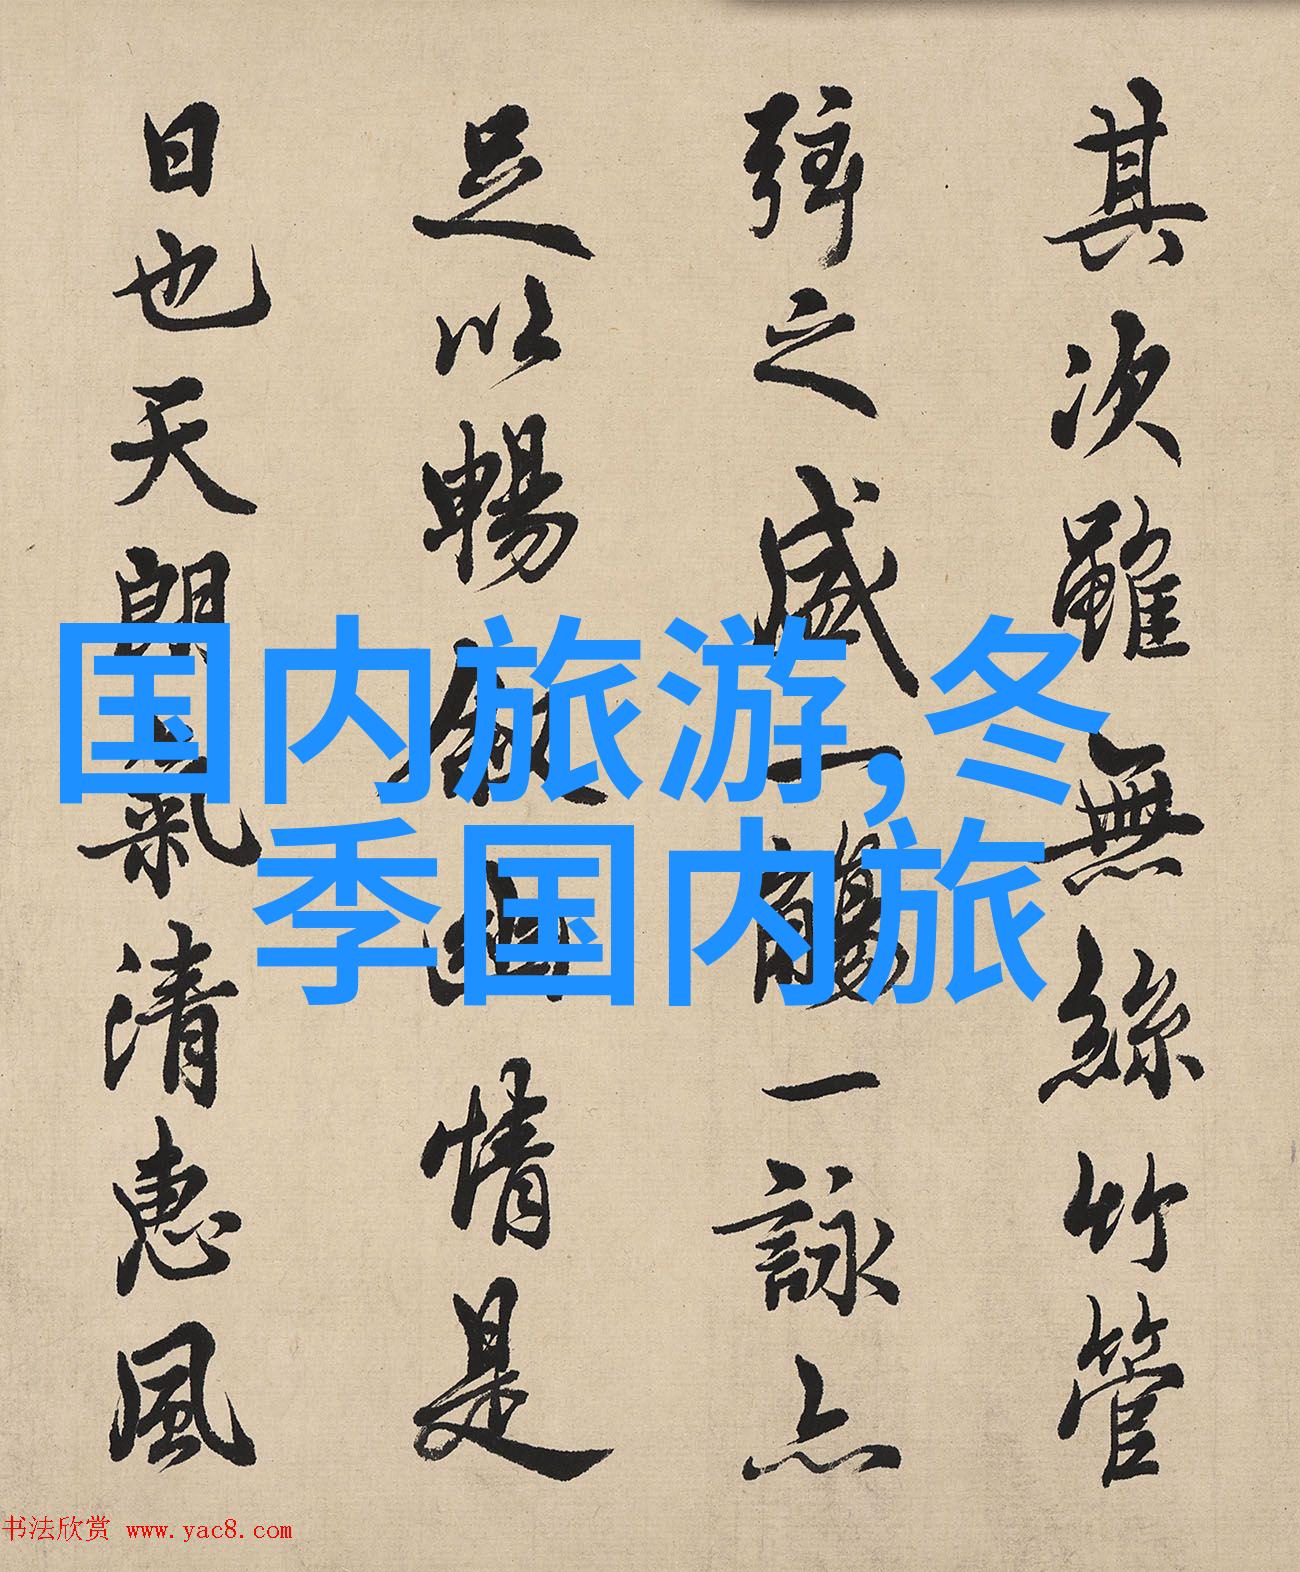 其次雖無絲竹管
弦之盛一觴一詠亦
足以暢敘幽情是
日也天朗氣清惠風
国内旅游,冬
季国内旅
书法欣赏 www.yac8.com